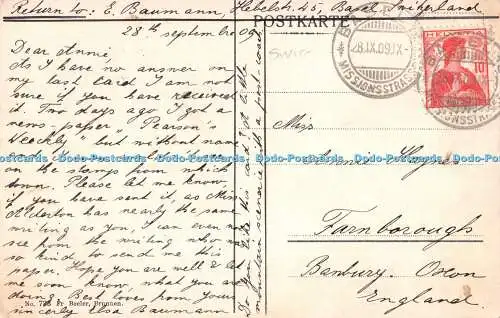 Return to: E. Baumann, Hebelstr. 45, Basel, Switzerland
POSTKARTE
28th septembre 09.
Dear Annie,
As I have no answer on
my last card I am not
sure if you have received
it. Two days ago I got a
news paper "Pearson's
Weekly" but without name
on the stamps from which
town. Please let me know
if you have sent it, as Miss
Alderton has nearly the same
writing as you, I can even not
see from the writing who was
so kind to send me this
paper. Hope you are well & let
me soon know, what you are
doing. Best loves from yours
sincerely Elsa Baumann
Do you like this card & a little
mountain scenerie with a post-coach
No. 738 Fr. Beeler, Brunnen.
Swiss
28.IX.09.IX
MISSIONSSTR
HELVETIA
10
Miss
Annie Haynes
Farnborough
Banbury. Oxon
England
Dodo-Postcards Dodo-Postcards Dodo-Postcards Dodo-Postcards Dodo-Postcards